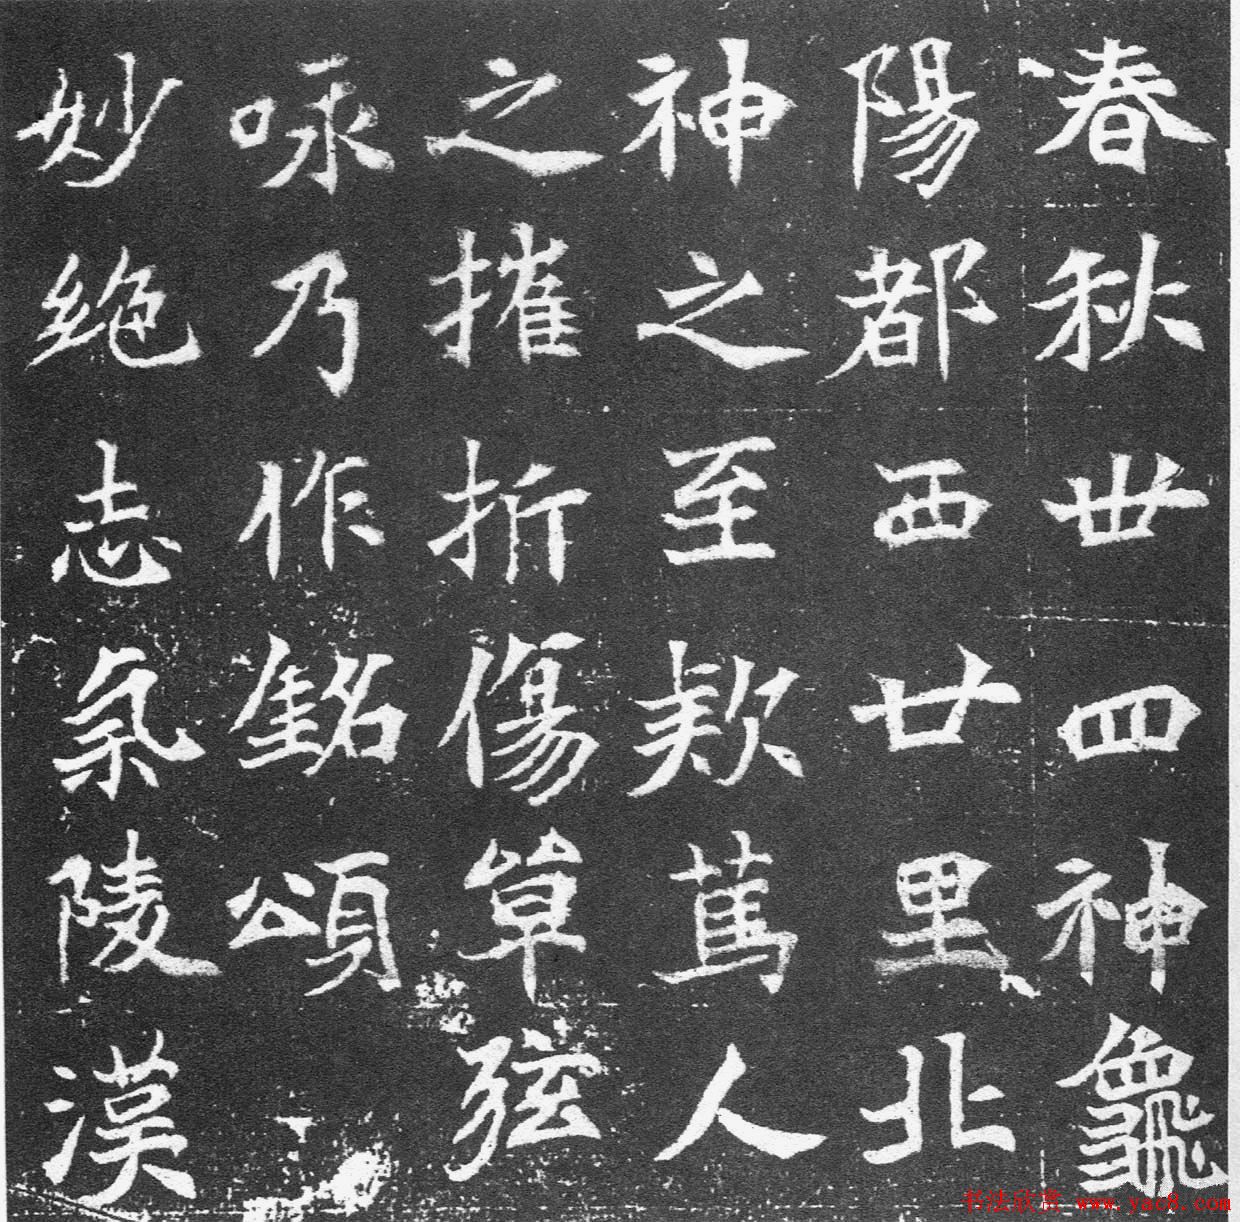 春秋丗四神龜
陽都西廿里北
神之至欵篤人
之摧折傷草弦
咏乃作銘頌
妙絕志氣陵漢
书法欣赏 www.yac8.com